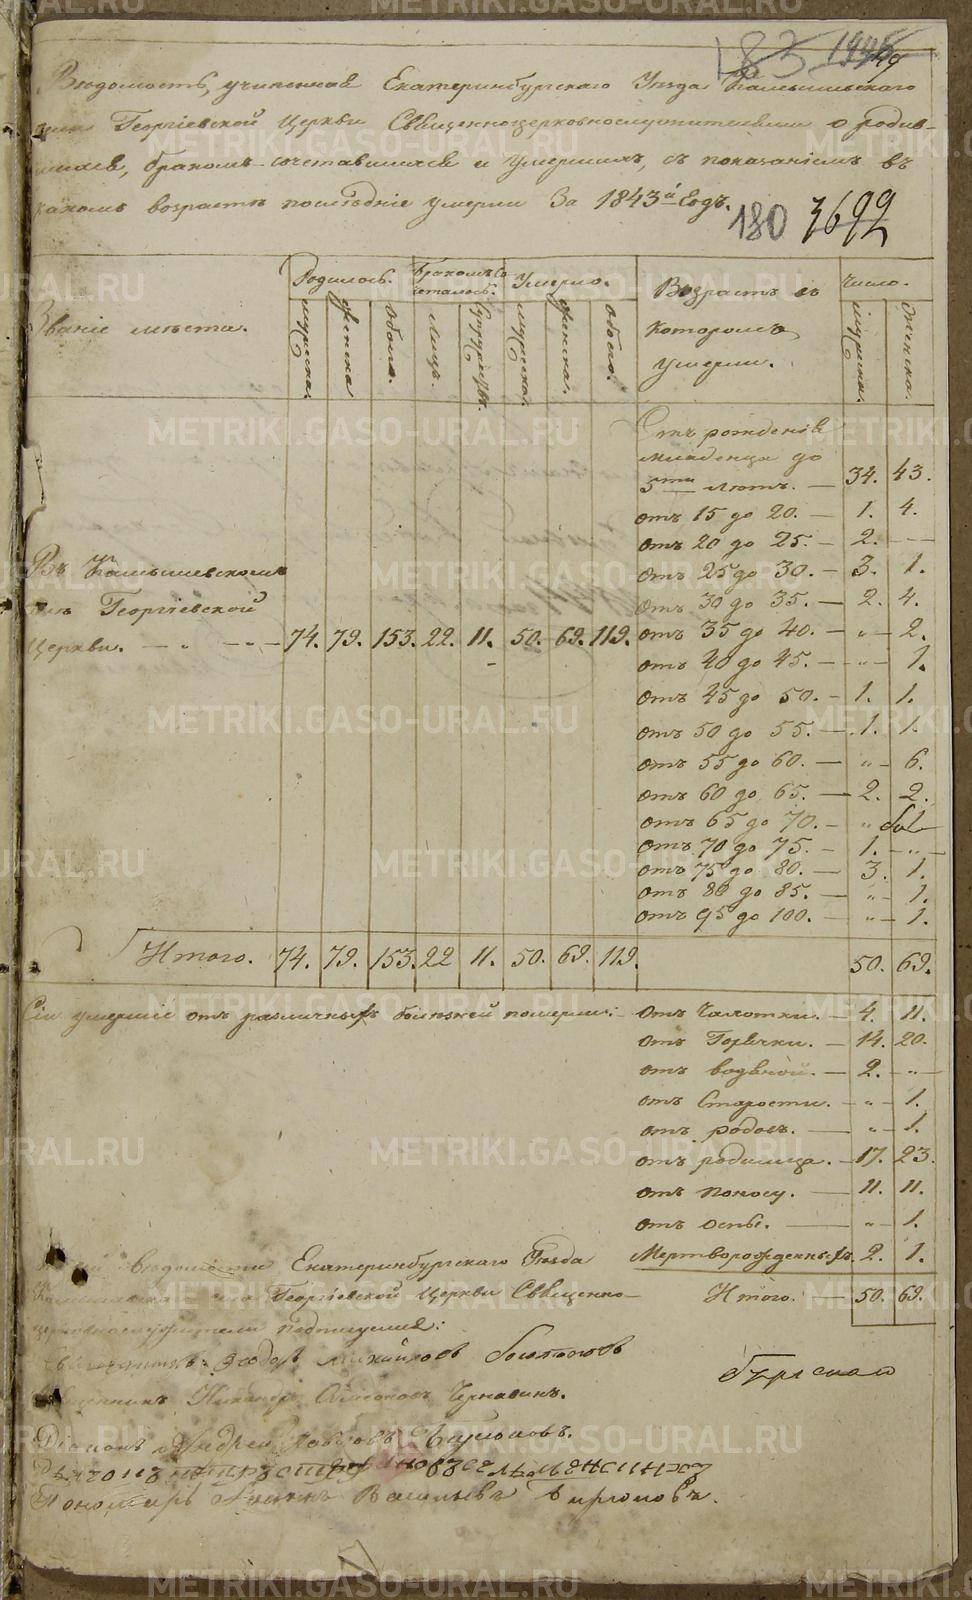 183 1946
Вѣдомость, учиненная Екатеринбургскаго Уѣзда Камышевскаго
Георгіевской Церкви Священноцерковнослужителями о родив-
шихся, бракомъ сочетавшихся и умершихъ, съ показаніемъ въ
какомъ возрастѣ послѣдніе умерли За 1843й Годъ.
180 3692
Званіе мѣста.
Родилось. Бракомъ Со четалось. Умерло. Возрастъ въ которомъ умерли. Число.
мужеска. женска. обоего. Лицъ. Супружествъ. мужеска. женска. обоего. мужеска. женска.
Отъ рожденія
младенца до
5ти лѣтъ. — 34. 43.
отъ 15 до 20. — 1. 4.
отъ 20 до 25. — 2. —
отъ 25 до 30. — 3. 1.
отъ 30 до 35. — 2. 4.
Въ Камышевскомъ
Георгіевской
Церкви. — „ — 74. 79. 153. 22. 11. 50. 69. 119.
отъ 35 до 40. — „ — 2.
отъ 40 до 45. — „ — 1.
отъ 45 до 50. — 1. 1.
отъ 50 до 55. — 1. 1.
отъ 55 до 60. — „ — 6.
отъ 60 до 65. — 2. 2.
отъ 65 до 70. — „
отъ 70 до 75. — 1. — „ —
отъ 75 до 80. — 3. 1.
отъ 80 до 85. — „ — 1.
отъ 95 до 100. — „ — 1.
Итого. 74. 79. 153. 22 11. 50. 69. 119. 50. 69.
Сіи умершіе отъ различныхъ болѣзней померли: —
отъ Чахотки. — 4. 11.
отъ Горячки. — 14. 20.
отъ водяной. — 2. — „ —
отъ Старости. — „ — 1.
отъ родовъ. — „ — 1.
отъ родимца. — 17. 23.
отъ поносу. — 11. 11.
отъ оспы. — „ — 1.
Мертворожденныхъ. 2. 1.
Итого. — 50. 69.
вѣдомости Екатеринбургскаго Уѣзда
Георгіевской Церкви Священно-
церковнослужители подпишемся:
Священникъ Ѳеодоръ Михайловъ
Священникъ Никаноръ Чернавинъ.
Діаконъ Андрей Павловъ
Пономарь Васильевъ
METRIKI.GASO-URAL.RU